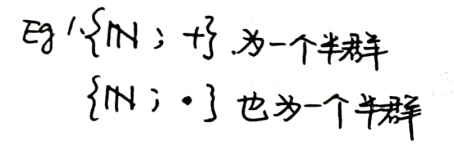 Eg 1. {ℕ ; +} 为一个半群
{ℕ ; •} 也为一个半群